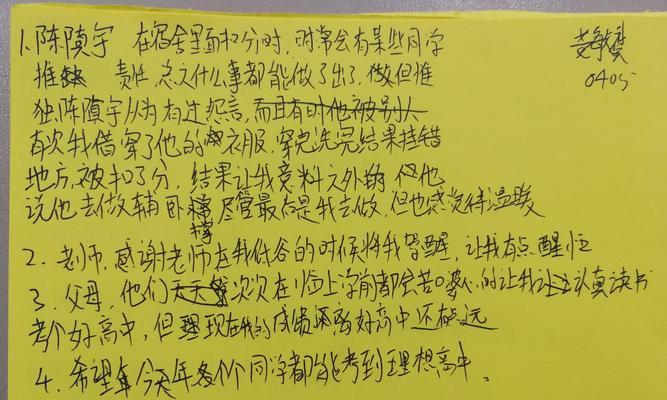 1. 陈隫宇 在宿舍里面扣分时,时常会有某些同学
黄敏
推 责任,总之什么事都能做了出了,做但惟
0405
独陈隫宇从为有过怨言,而且有时他被别人
有次我借穿了他的衣服,穿完洗完结果挂错
地方,被扣了分,结果让我意料之外的 但他
说他去做俯卧撑,尽管最后是我去做,但也感觉得温暖
2. 老师,感谢老师在我低谷的时候将我骂醒,让我有点醒悟
3. 父母,他们天天次次在临上学前都会苦口婆心的让我认真读书
考个好高中,但现在我的成绩还离好高中还极远
4. 希望今天年各个同学都能考到理想高中。